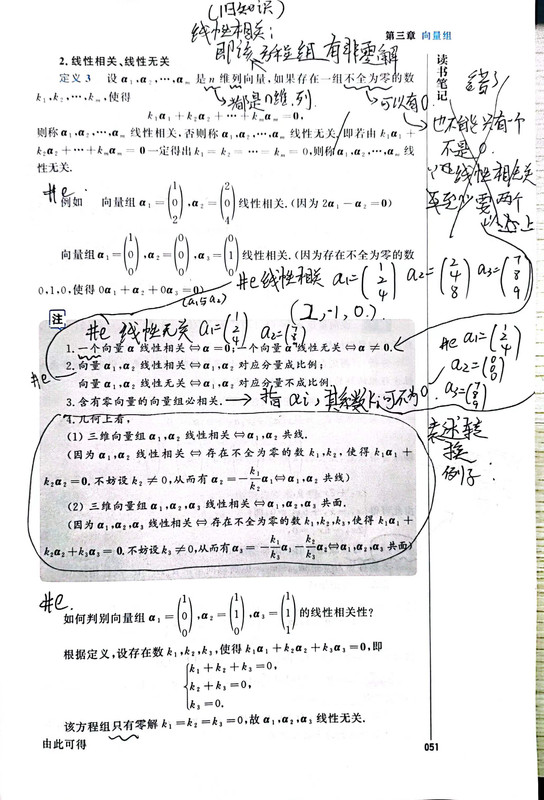 (旧知识)
线性相关:
即该方程组有非零解
第三章 向量组
读书笔记
2.线性相关、线性无关
定义3 设α₁,α₂,…,αₘ是n维列向量,如果存在一组不全为零的数
k₁,k₂,…,kₘ,使得
都是n维列.
可以有0.
k₁α₁+k₂α₂+…+kₘαₘ=0,
则称α₁,α₂,…,αₘ线性相关,否则称α₁,α₂,…,αₘ线性无关,即若由k₁α₁+
k₂α₂+…+kₘαₘ=0一定得出k₁=k₂=…=kₘ=0,则称α₁,α₂,…,αₘ线
性无关.
错了
也不能只有一个
不是0.
∵线性相关
至少要两个
以上
#e.
例如 向量组α₁=(1 0 2),α₂=(2 0 4)线性相关.(因为2α₁-α₂=0)
向量组α₁=(1 0 0),α₂=(0 0 0),α₃=(0 0 1)线性相关.(因为存在不全为零的数
0,1,0,使得0α₁+α₂+0α₃=0)
#e线性相关 α₁=(1 2 4) α₂=(2 4 8) α₃=(7 8 9)
(α₁与α₂)
(2,-1,0.)
注
#e 线性无关 α₁=(1 2 4) α₂=(7 8 9)
1.一个向量α线性相关⇔α=0;一个向量α线性无关⇔α≠0.
#e
2.向量α₁,α₂线性相关⇔α₁,α₂对应分量成比例;
向量α₁,α₂线性无关⇔α₁,α₂对应分量不成比例.
3.含有零向量的向量组必相关.
→非αi,其系数ki可不为0.
#e α₁=(1 2 4)
α₂=(0 0 0)
α₃=(7 8 9)
4.几何上看,
(1)三维向量组α₁,α₂线性相关⇔α₁,α₂共线.
(因为α₁,α₂线性相关⇔存在不全为零的数k₁,k₂,使得k₁α₁+
k₂α₂=0,不妨设k₂≠0,从而有α₂=-k₁/k₂α₁⇔α₁,α₂共线)
(2)三维向量组α₁,α₂,α₃线性相关⇔α₁,α₂,α₃共面.
(因为α₁,α₂,α₃线性相关⇔存在不全为零的数k₁,k₂,k₃,使得k₁α₁+
k₂α₂+k₃α₃=0,不妨设k₃≠0,从而有α₃=-k₁/k₃α₁-k₂/k₃α₂⇔α₁,α₂,α₃共面)
换
例子:
#e.
如何判别向量组α₁=(1 0 0),α₂=(1 1 0),α₃=(1 1 1)的线性相关性?
根据定义,设存在数k₁,k₂,k₃,使得k₁α₁+k₂α₂+k₃α₃=0,即
k₁+k₂+k₃=0,
k₂+k₃=0,
k₃=0.
该方程组只有零解k₁=k₂=k₃=0,故α₁,α₂,α₃线性无关.
由此可得
051